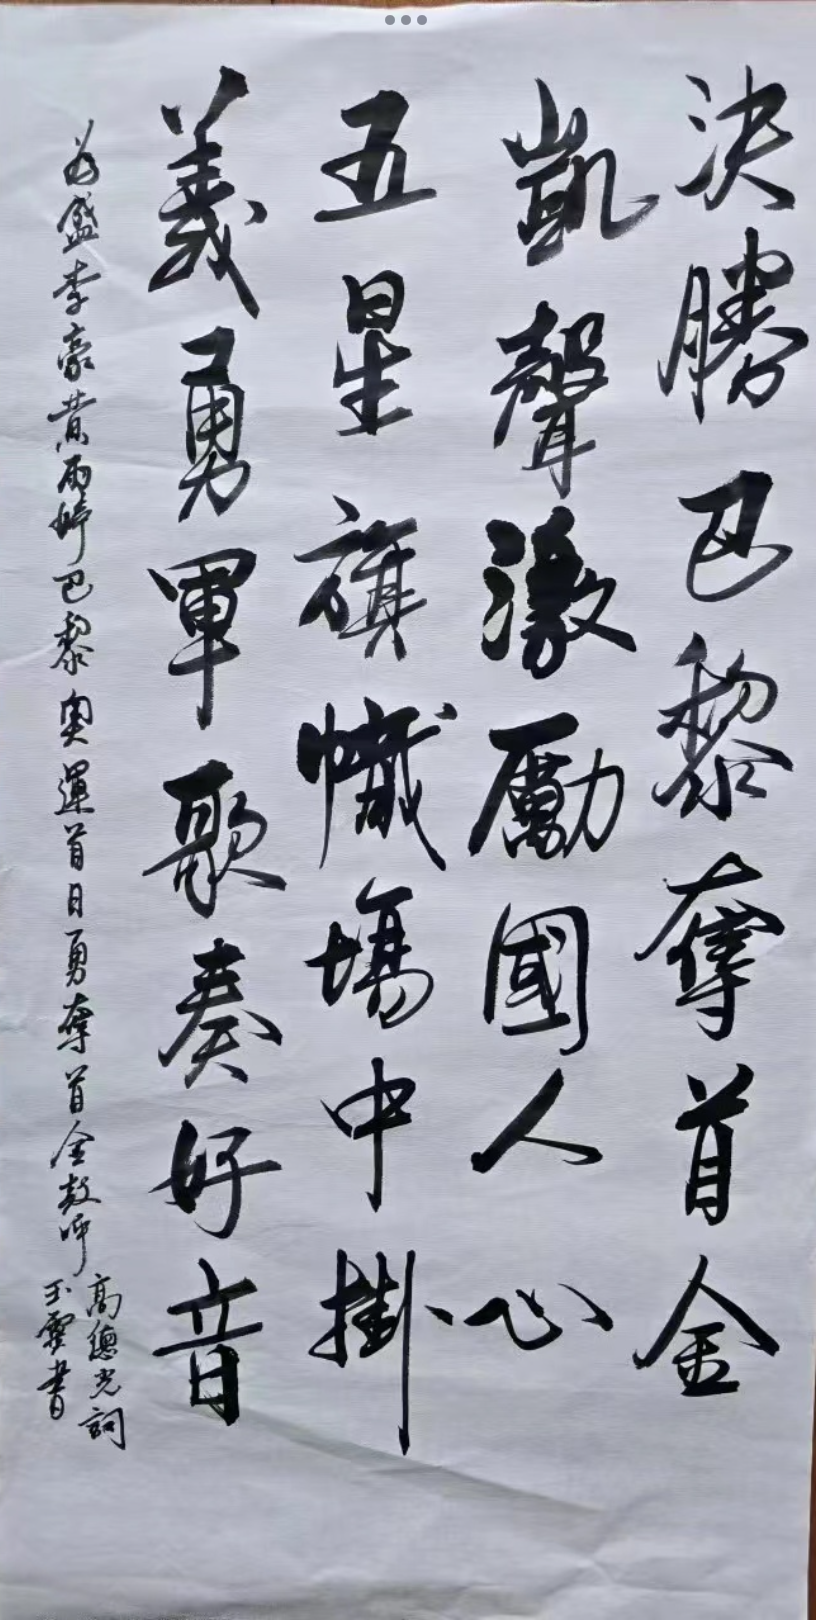 決勝巴黎奪首金
凱聲激勵國人心
五星旗幟場中掛
義勇軍歌奏好音
為盛李豪黄雨婷巴黎奥運首日勇奪首金鼓呼
高德光詞
玉霞書